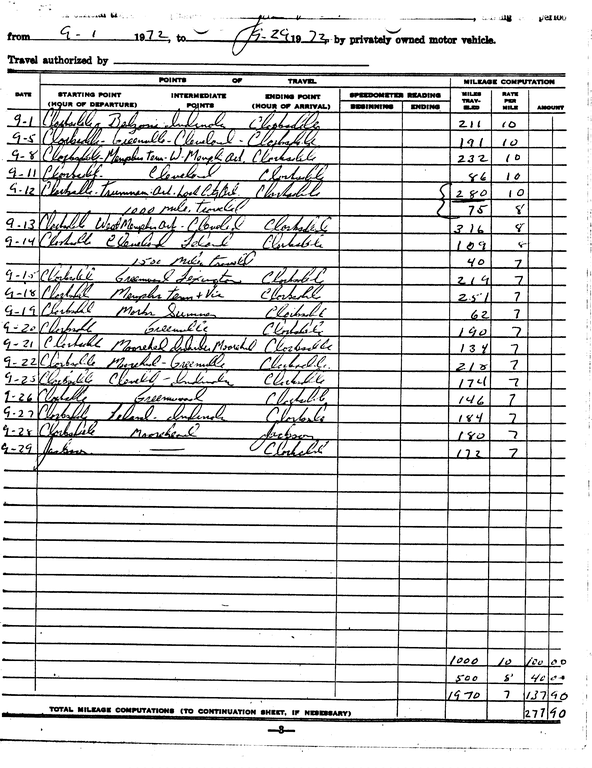 from 9-1 1972, to 9-29 1972, by privately owned motor vehicle.
Travel authorized by
POINTS OF TRAVEL MILEAGE COMPUTATION
DATE STARTING POINT (HOUR OF DEPARTURE) INTERMEDIATE POINTS ENDING POINT (HOUR OF ARRIVAL) SPEEDOMETER READING BEGINNING ENDING MILES TRAVELED RATE PER MILE AMOUNT
9-1 Clarksdale Belzoni Indianola Clarksdale 211 10
9-5 Clarksdale - Greenville - Cleveland - Clarksdale 191 10
9-8 Clarksdale - Memphis Tenn - W. Memph Ark. Clarksdale 232 10
9-11 Clarksdale - Cleveland Clarksdale 86 10
9-12 Clarksdale - Trumman - Ark. Clarksdale 280 10
1000 miles Traveled 75 8
9-13 Clarksdale West Memphis Ark - Cleveland Clarksdale 316 8
9-14 Clarksdale Cleveland Leland Clarksdale 109 8
1500 miles traveled 40 7
9-15 Clarksdale Greenwood Lexington Clarksdale 219 7
9-18 Clarksdale Memphis Tenn + Vic Clarksdale 251 7
9-19 Clarksdale Marks Sumner Clarksdale 62 7
9-20 Clarksdale Greenville Clarksdale 190 7
9-21 Clarksdale Moorehead Indianola Moorehead Clarksdale 134 7
9-22 Clarksdale Moorehead - Greenville Clarksdale 218 7
9-25 Clarksdale Cleveland - Indianola Clarksdale 174 7
9-26 Clarksdale Greenwood Clarksdale 146 7
9-27 Clarksdale Leland - Indianola Clarksdale 184 7
9-28 Clarksdale Moorehead Jackson 180 7
9-29 Jackson — Clarksdale 172 7
1000 10 100 00
500 8 40 00
1970 7 137 90
TOTAL MILEAGE COMPUTATIONS (TO CONTINUATION SHEET, IF NESESSARY) 277 90
—8—